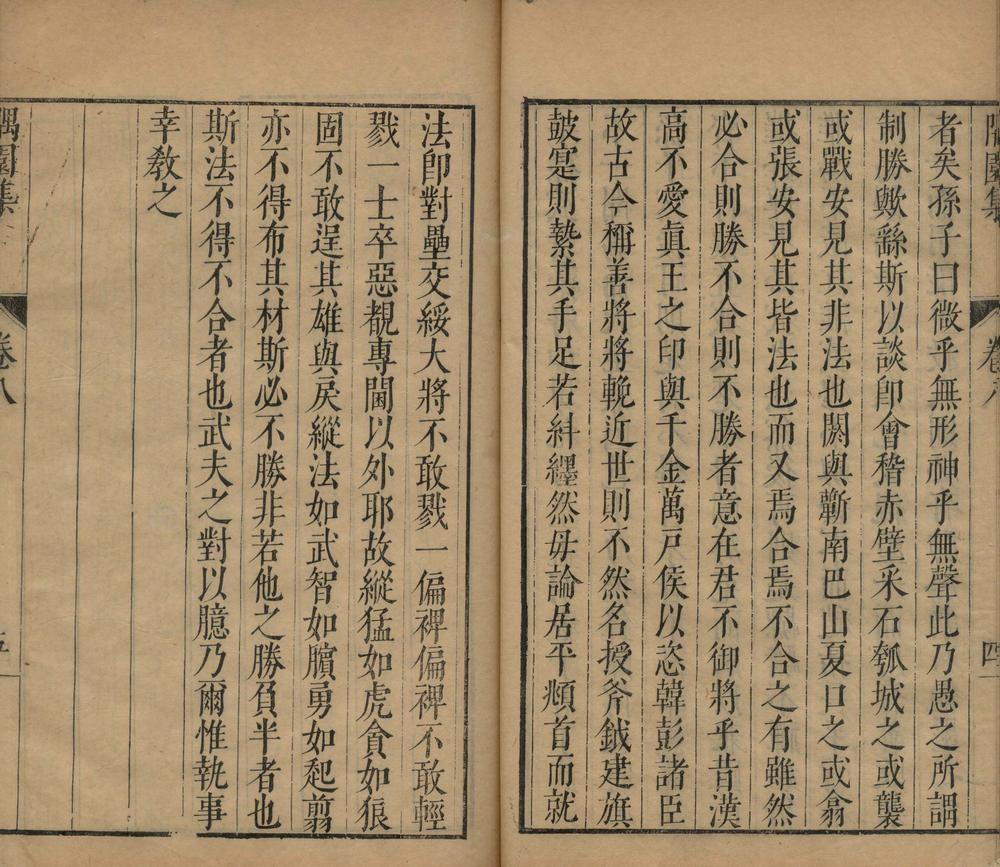 隅園集
卷八
四
者矣孫子曰微乎無形神乎無聲此乃愚之所謂
制勝歟繇斯以談卽會稽赤壁采石瓠城之或襲
或戰安見其非法也閼與蘄南巴山夏口之或翕
或張安見其皆法也而又焉合焉不合之有雖然
必合則勝不合則不勝者意在君不御將乎昔漢
高不愛眞王之印與千金萬戸侯以恣韓彭諸臣
故古今稱善將將輓近世則不然名授斧鉞建旗
皷寔則縶其手足若糾纆然毋論居平頫首而就
法卽對壘交綏大將不敢戮一偏裨偏裨不敢輕
戮一士卒惡覩專閫以外耶故縱猛如虎貪如狼
固不敢逞其雄與戾縱法如武智如臏勇如起翦
亦不得布其材斯必不勝非若他之勝負半者也
斯法不得不合者也武夫之對以臆乃爾惟執事
幸敎之
隅園集
卷八
五